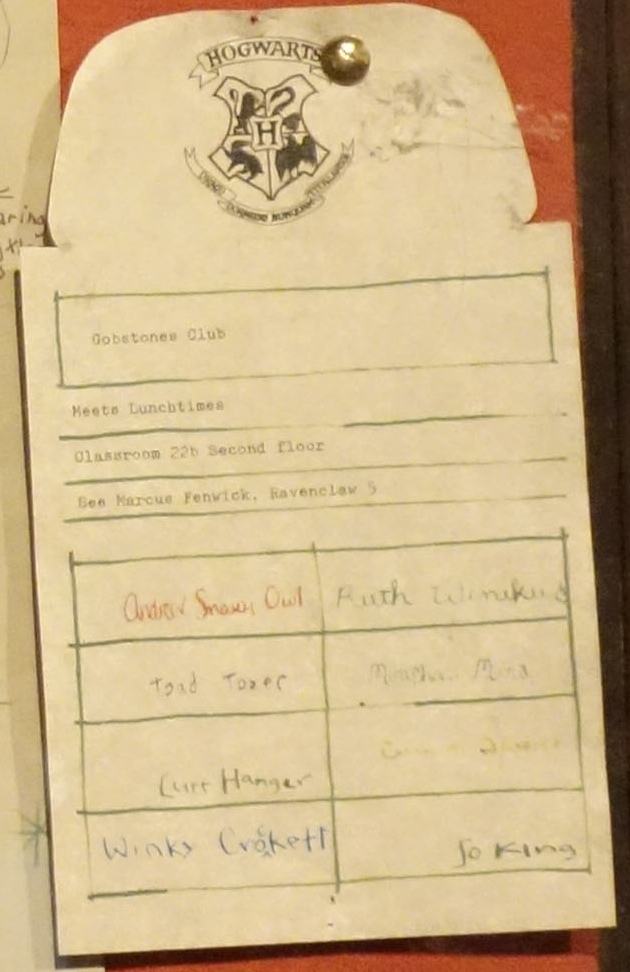 HOGWARTS
H
DRACO DORMIENS NUNQUAM TITILLANDUS
Gobstones Club
Meets Lunchtimes
Classroom 22b Second floor
See Marcus Fenwick, Ravenclaw 5
Andrew Snowy Owl
Ruth
Toad Tozer
Curr Hanger
Winky Crokett
Jo King
aring